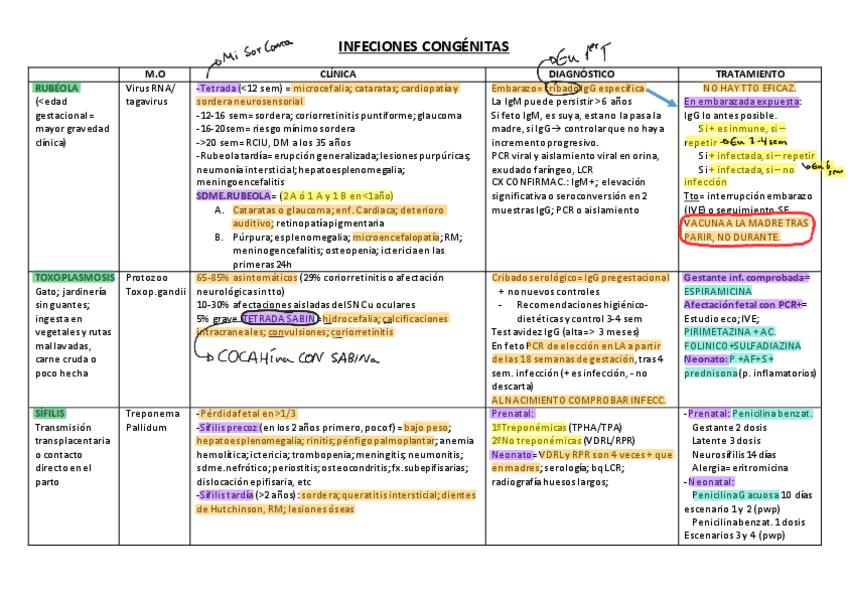 INFECIONES CONGÉNITAS
Mi Sor Conca
→En 1er T
M.O
CLÍNICA
DIAGNÓSTICO
TRATAMIENTO
RUBÉOLA
(<edad
gestacional =
mayor gravedad
clínica)
Virus RNA/
tagavirus
-Tetrada (<12 sem) = microcefalia; cataratas; cardiopatía y
sordera neurosensorial
-12-16 sem= sordera; coriorretinitis puntiforme; glaucoma
-16-20sem= riesgo mínimo sordera
->20 sem= RCIU, DM a los 35 años
-Rubeola tardía= erupción generalizada; lesiones purpúricas;
neumonía intersticial; hepatoesplenomegalia;
meningoencefalitis
SDME.RUBEOLA= (2 A ó 1 A y 1 B en <1año)
A. Cataratas o glaucoma; enf. Cardiaca; deterioro
auditivo; retinopatía pigmentaria
B. Púrpura; esplenomegalia; microencefalopatía; RM;
meningencefalitis; osteopenia; ictericia en las
primeras 24h
Embarazo= Cribado IgG específica.
La IgM puede persistir >6 años
Si feto IgM, es suya, esta no la pasa la
madre, si IgG→ controlar que no haya
incremento progresivo.
PCR viral y aislamiento viral en orina,
exudado faríngeo, LCR
CX CONFIRMAC.: IgM+; elevación
significativa o seroconversión en 2
muestras IgG; PCR o aislamiento
NO HAY TTO EFICAZ.
En embarazada expuesta:
IgG lo antes posible.
Si + es inmune, si –
repetir →En 3-4 sem
Si + infectada, si – repetir
→En 6 sem
Si + infectada, si – no
infección
Tto= interrupción embarazo
(IVE) o seguimiento SF
VACUNA A LA MADRE TRAS
PARIR, NO DURANTE.
TOXOPLASMOSIS
Gato; jardinería
sin guantes;
ingesta en
vegetales y rutas
mal lavadas,
carne cruda o
poco hecha
Protozoo
Toxop.gandii
65-85% asintomáticos (29% coriorretinitis o afectación
neurológica sin tto)
10-30% afectaciones aisladas del SNC u oculares
5% grave TETRADA SABIN=hidrocefalia; calcificaciones
intracraneales; convulsiones; coriorretinitis
→COCAHína CON SABINA
Cribado serológico= IgG pregestacional
+ no nuevos controles
- Recomendaciones higiénico-
dietéticas y control 3-4 sem
Test avidez IgG (alta=> 3 meses)
En feto PCR de elección en LA a partir
de las 18 semanas de gestación, tras 4
sem. infección (+ es infección, - no
descarta)
AL NACIMIENTO COMPROBAR INFECC.
Gestante inf. comprobada=
ESPIRAMICINA
Afectación fetal con PCR+=
Estudio eco; IVE;
PIRIMETAZINA + AC.
FOLINICO+SULFADIAZINA
Neonato: P +AF+S +
prednisona (p. inflamatorios)
SÍFILIS
Transmisión
transplacentaria
o contacto
directo en el
parto
Treponema
Pallidum
-Pérdida fetal en >1/3
-Sífilis precoz (en los 2 años primero, poco f) = bajo peso;
hepatoesplenomegalia; rinitis; pénfigo palmoplantar; anemia
hemolítica; ictericia; trombopenia; meningitis; neumonitis;
sdme.nefrótico; periostitis; osteocondritis; fx.subepifisarias;
dislocación epifisaria, etc
-Sífilis tardía (>2 años) : sordera; queratitis intersticial; dientes
de Hutchinson, RM; lesiones óseas
Prenatal:
1ºTreponémicos (TPHA/TPA)
2ºNo treponémicos (VDRL/RPR)
Neonato= VDRL y RPR son 4 veces + que
en madres; serología; bq LCR;
radiografía huesos largos;
-Prenatal: Penicilina benzat.
Gestante 2 dosis
Latente 3 dosis
Neurosífilis 14 días
Alergia= eritromicina
-Neonatal:
Penicilina G acuosa 10 días
escenario 1 y 2 (pwp)
Penicilina benzat. 1 dosis
Escenarios 3 y 4 (pwp)